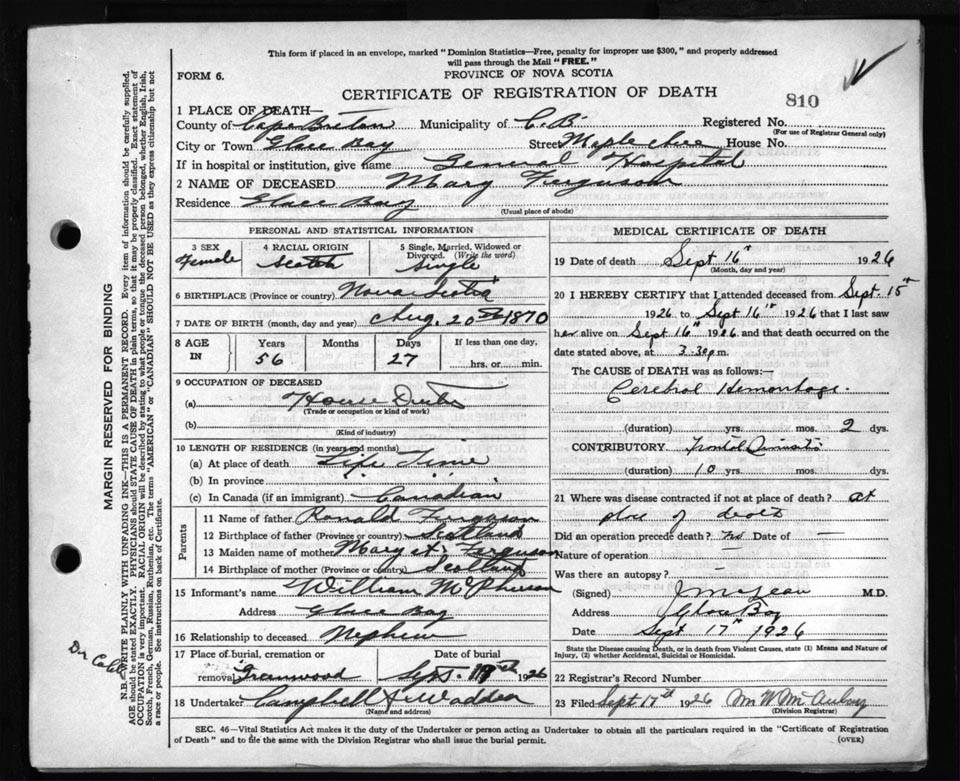 This form if placed in an envelope, marked "Dominion Statistics—Free, penalty for improper use $300," and properly addressed
will pass through the Mail "FREE."
FORM 6.
PROVINCE OF NOVA SCOTIA
CERTIFICATE OF REGISTRATION OF DEATH
810
1 PLACE OF DEATH—
County of Cape Breton Municipality of C.B. Registered No.
(For use of Registrar General only)
City or Town Glace Bay Street Maple House No.
If in hospital or institution, give name General Hospital
2 NAME OF DECEASED Mary Ferguson
Residence Glace Bay
(Usual place of abode)
PERSONAL AND STATISTICAL INFORMATION
3 SEX Female
4 RACIAL ORIGIN Scotch
5 Single, Married, Widowed or Divorced. (Write the word) Single
6 BIRTHPLACE (Province or country) Nova Scotia
7 DATE OF BIRTH (month, day and year) Aug. 20 1870
8 AGE IN Years 56 Months Days 27 If less than one day, hrs. or min.
9 OCCUPATION OF DECEASED
(a) House Duties
(Trade or occupation or kind of work)
(b)
(Kind of industry)
10 LENGTH OF RESIDENCE (in years and months)
(a) At place of death Life Time
(b) In province " "
(c) In Canada (if an immigrant) Canadian
Parents
11 Name of father Ronald Ferguson
12 Birthplace of father (Province or country) Scotland
13 Maiden name of mother Mary A. Ferguson
14 Birthplace of mother (Province or country) Scotland
15 Informant's name William McPherson
Address Glace Bay
16 Relationship to deceased Nephew
17 Place of burial, cremation or removal Greenwood
Date of burial Sept. 1926
18 Undertaker Campbell & Wadden
(Name and address)
MEDICAL CERTIFICATE OF DEATH
19 Date of death Sept 16th 1926
(Month, day and year)
20 I HEREBY CERTIFY that I attended deceased from Sept. 15th
1926 to Sept 16th 1926 that I last saw
her alive on Sept 16th 1926 and that death occurred on
date stated above, at 3.30 p.m.
The CAUSE of DEATH was as follows:—
Cerebral Hemorrhage.
(duration) yrs. mos. 2 dys.
CONTRIBUTORY
(duration) 10 yrs. mos. dys.
21 Where was disease contracted if not at place of death? at
place of death
Did an operation precede death? No Date of —
Nature of operation —
Was there an autopsy? —
(Signed) J McLean M.D.
Address Glace Bay
Date Sept 17th 1926
State the Disease causing Death, or in death from Violent Causes, state (1) Means and Nature of
Injury, (2) whether Accidental, Suicidal or Homicidal.
22 Registrar's Record Number
23 Filed Sept 17th 1926
(Division Registrar)
SEC. 46—Vital Statistics Act makes it the duty of the Undertaker or person acting as Undertaker to obtain all the particulars required in the "Certificate of Registration
of Death" and to file the same with the Division Registrar who shall issue the burial permit.
(OVER)
MARGIN RESERVED FOR BINDING
N.B.—WRITE PLAINLY WITH UNFADING INK—THIS IS A PERMANENT RECORD. Every item of information should be carefully supplied.
AGE should be stated EXACTLY. PHYSICIANS should STATE CAUSE OF DEATH in plain terms, so that it may be properly classified. Exact statement of
OCCUPATION is very important. RACIAL ORIGIN will be described by stating to what people or tongue the deceased person belonged, whether English, Irish,
Scotch, French, German, Russian, Ruthenian, etc. The terms "AMERICAN" or "CANADIAN" SHOULD NOT BE USED as they express citizenship but not
a race or people. See instructions on back of Certificate.